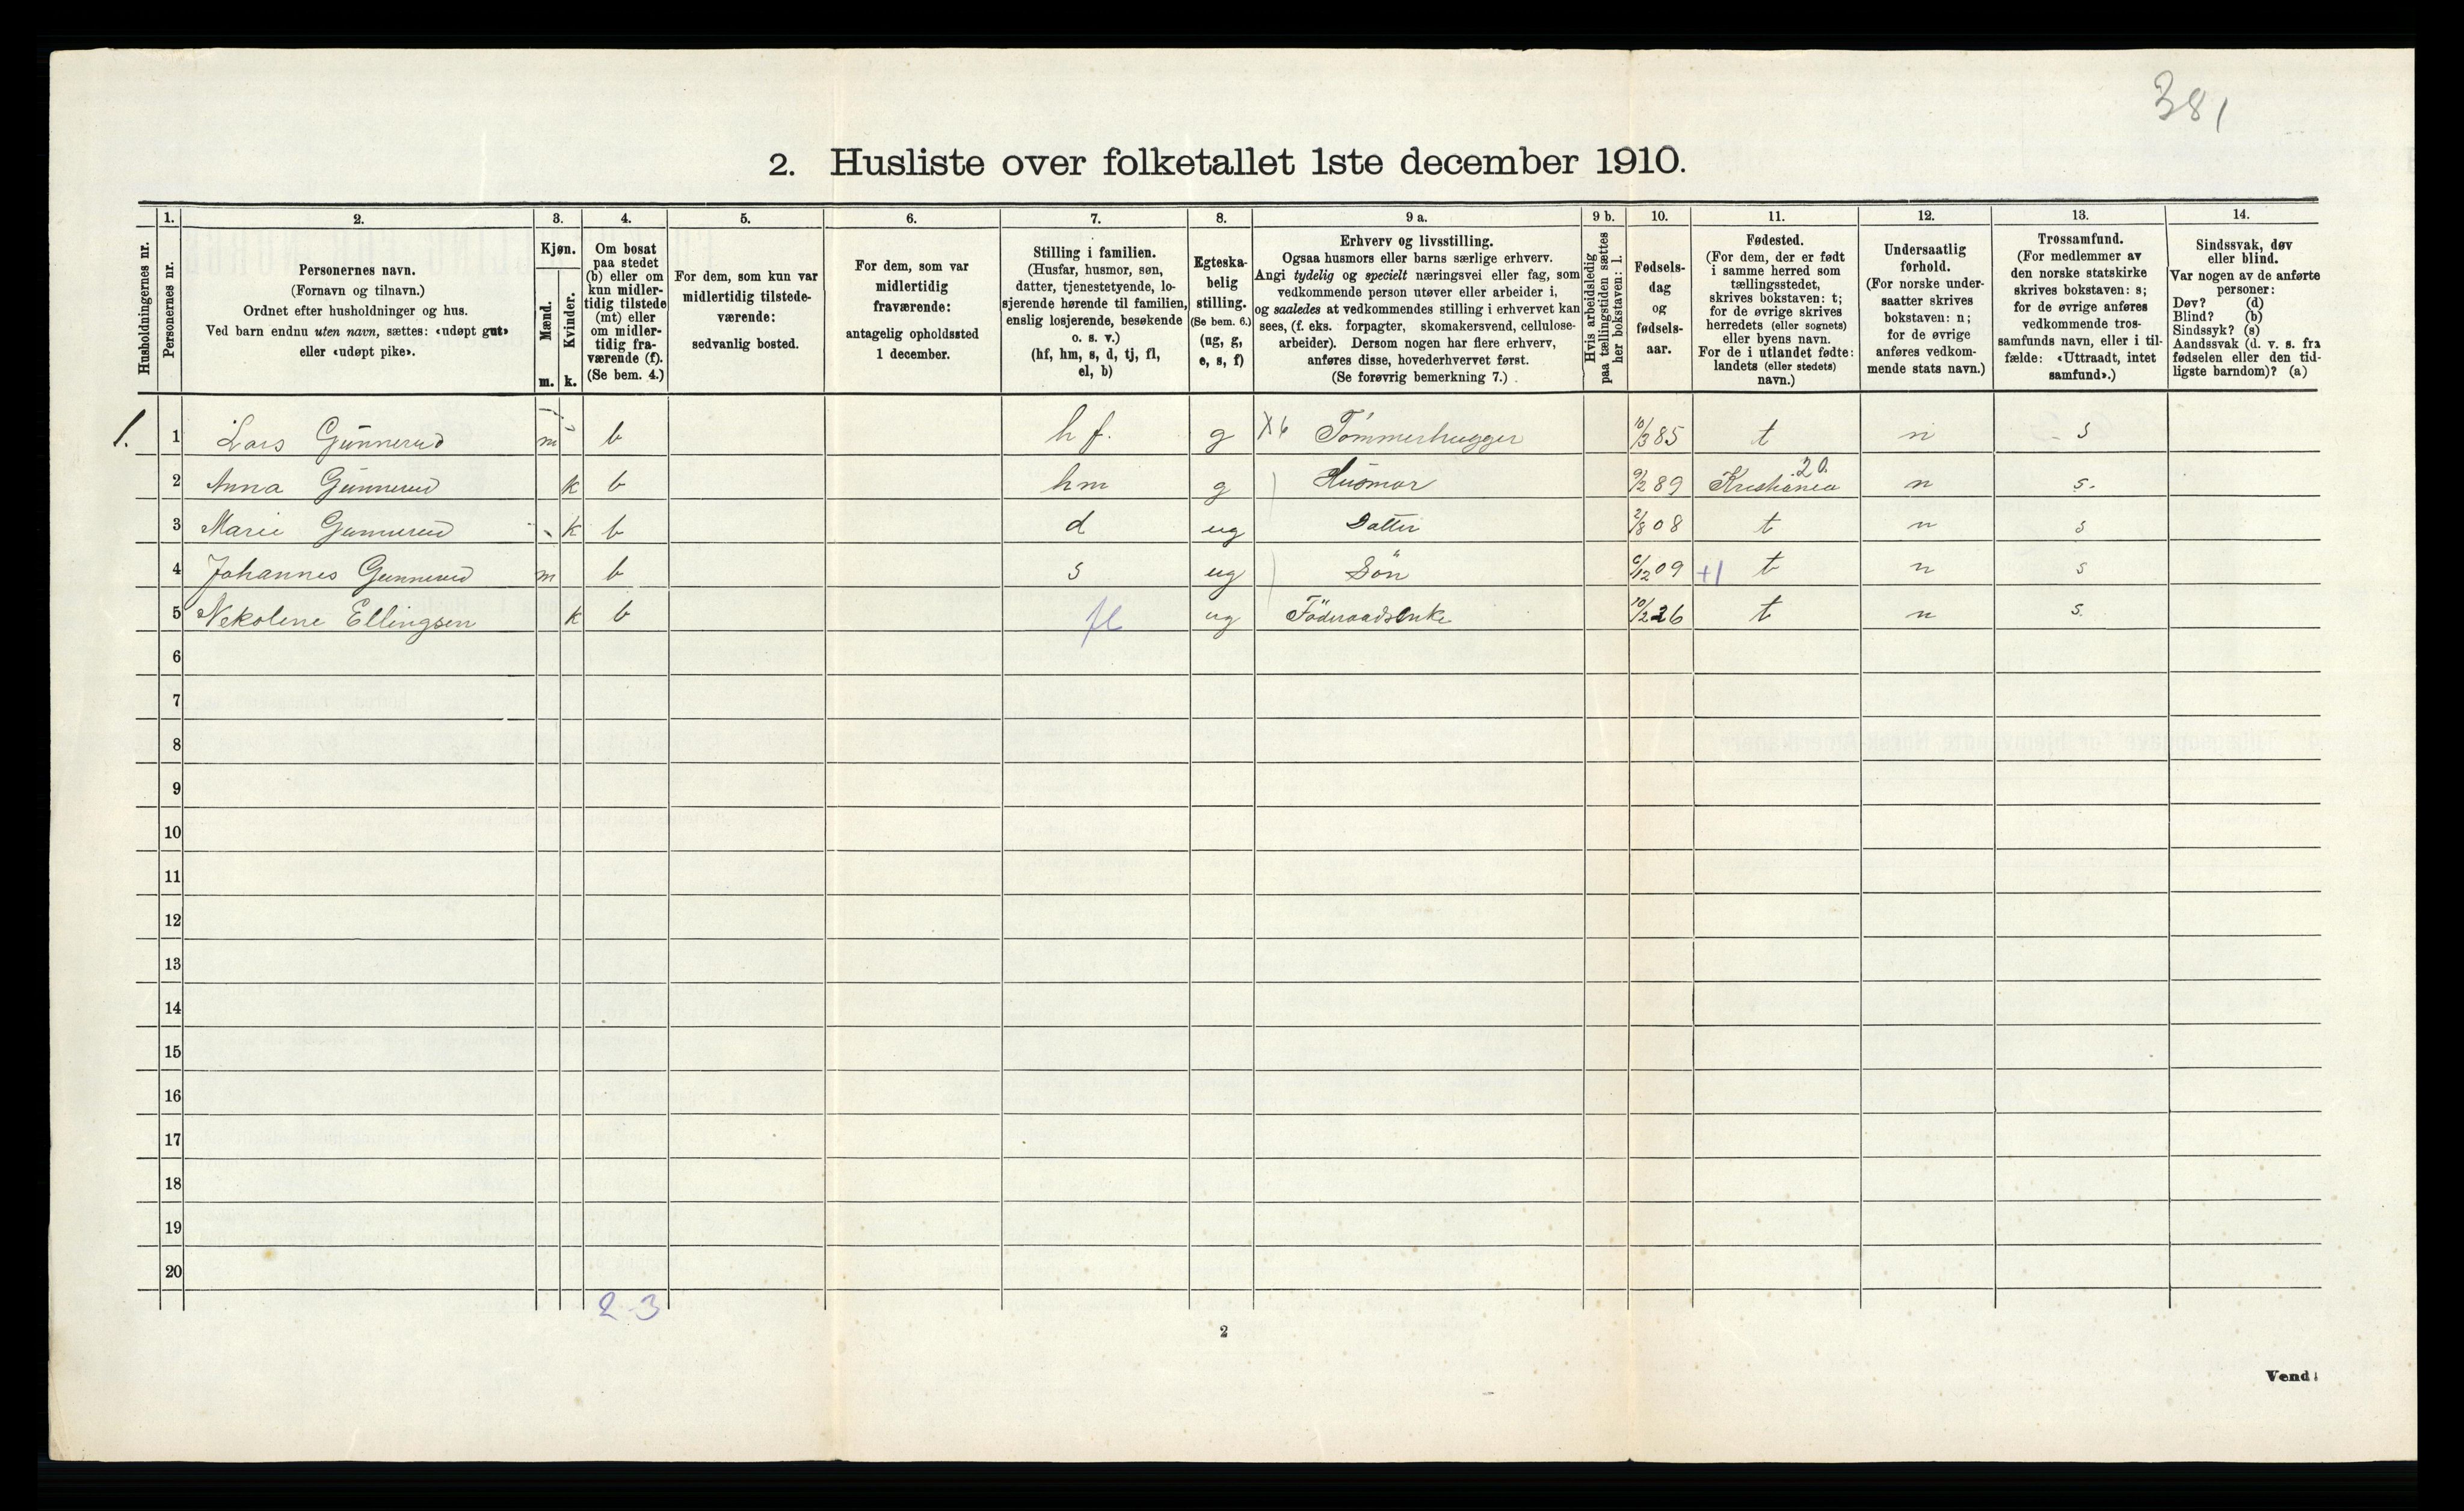 381
2. Husliste over folketallet 1ste december 1910.
Husholdningernes nr.
1. Personernes nr.
2. Personernes navn.
(Fornavn og tilnavn.)
Ordnet efter husholdninger og hus.
Ved barn endnu uten navn, sættes: «udøpt gut»
eller «udøpt pike».
3. Kjøn.
Mænd. m.
Kvinder. k.
4. Om bosat
paa stedet
(b) eller om
kun midler-
tidig tilstede
(mt) eller
om midler-
tidig fra-
værende (f).
(Se bem. 4.)
5. For dem, som kun var
midlertidig tilstede-
værende:
sedvanlig bosted.
6. For dem, som var
midlertidig
fraværende:
antagelig opholdssted
1 december.
7. Stilling i familien.
(Husfar, husmor, søn,
datter, tjenestetyende, lo-
sjerende hørende til familien,
enslig losjerende, besøkende
o. s. v.)
(hf, hm, s, d, tj, fl,
el, b)
8. Egteska-
belig
stilling.
(Se bem. 6.)
(ug, g,
e, s, f)
9 a. Erhverv og livsstilling.
Ogsaa husmors eller barns særlige erhverv.
Angi tydelig og specielt næringsvei eller fag, som
vedkommende person utøver eller arbeider i,
og saaledes at vedkommendes stilling i erhvervet kan
sees, (f. eks. forpagter, skomakersvend, cellulose-
arbeider). Dersom nogen har flere erhverv,
anføres disse, hovederhvervet først.
(Se forøvrig bemerkning 7.)
9 b. Hvis arbeidsledig
paa tællingstiden sættes
her bokstaven: l.
10. Fødsels-
dag
og
fødsels-
aar.
11. Fødested.
(For dem, der er født
i samme herred som
tællingsstedet,
skrives bokstaven: t;
for de øvrige skrives
herredets (eller sognets)
eller byens navn.
For de i utlandet fødte:
landets (eller stedets)
navn.)
12. Undersaatlig
forhold.
(For norske under-
saatter skrives
bokstaven: n;
for de øvrige
anføres vedkom-
mende stats navn.)
13. Trossamfund.
(For medlemmer av
den norske statskirke
skrives bokstaven: s;
for de øvrige anføres
vedkommende tros-
samfunds navn, eller i til-
fælde: «Uttraadt, intet
samfund».)
14. Sindssvak, døv
eller blind.
Var nogen av de anførte
personer:
Døv? (d)
Blind? (b)
Sindssyk? (s)
Aandssvak (d. v. s. fra
fødselen eller den tid-
ligste barndom)? (a)
1. 1 Lars Gunnerud m b hf. g X6 Tömmerhugger 10/3 85 t n s
2 Anna Gunnerud k b hm g Husmor 9/2 89 Kristiania 20. n s.
3 Marie Gunnerud k b d ug Datter 2/8 08 t n s
4 Johannes Gunnerud m b s ug Sön 6/12 09 +1 t n s
5 Nekoline Ellingsen k b fl ug Föderaadsenke 10/2 26 t n s.
6
7
8
9
10
11
12
13
14
15
16
17
18
19
20
2-3
2
Vend!